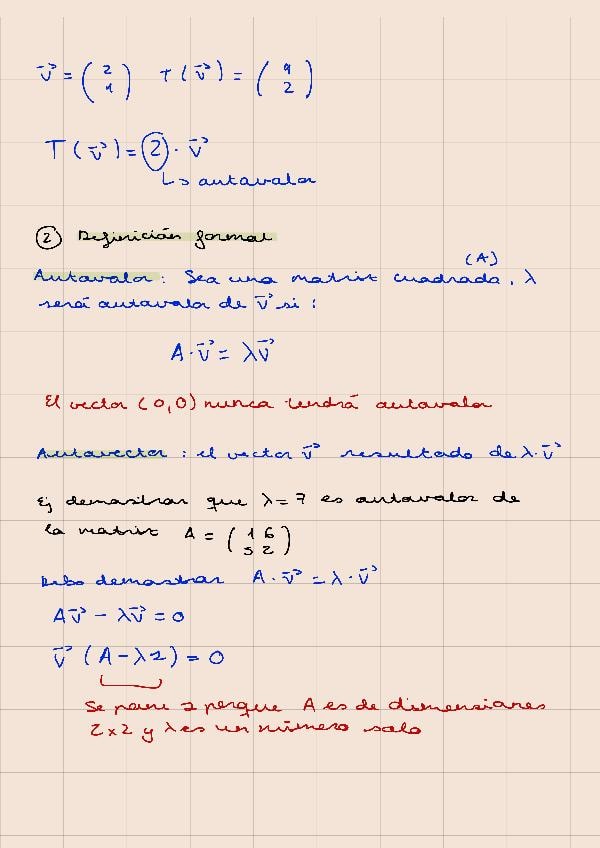 v⃗ = (2 1) T(v⃗) = (4 2)
T(v⃗) = 2 · v⃗
↳ autovalor
② Definición formal
Autovalor: Sea una matriz cuadrada (A), λ
será autovalor de v⃗ si:
A · v⃗ = λv⃗
El vector (0,0) nunca tendrá autovalor
Autovector: el vector v⃗ resultado de λ·v⃗
Ej demostrar que λ=7 es autovalor de
la matriz A = (1 6 5 2)
Debo demostrar A · v⃗ = λ · v⃗
Av⃗ - λv⃗ = 0
v⃗ (A - λ2) = 0
Se pone 2 porque A es de dimensiones
2x2 y λ es un número solo